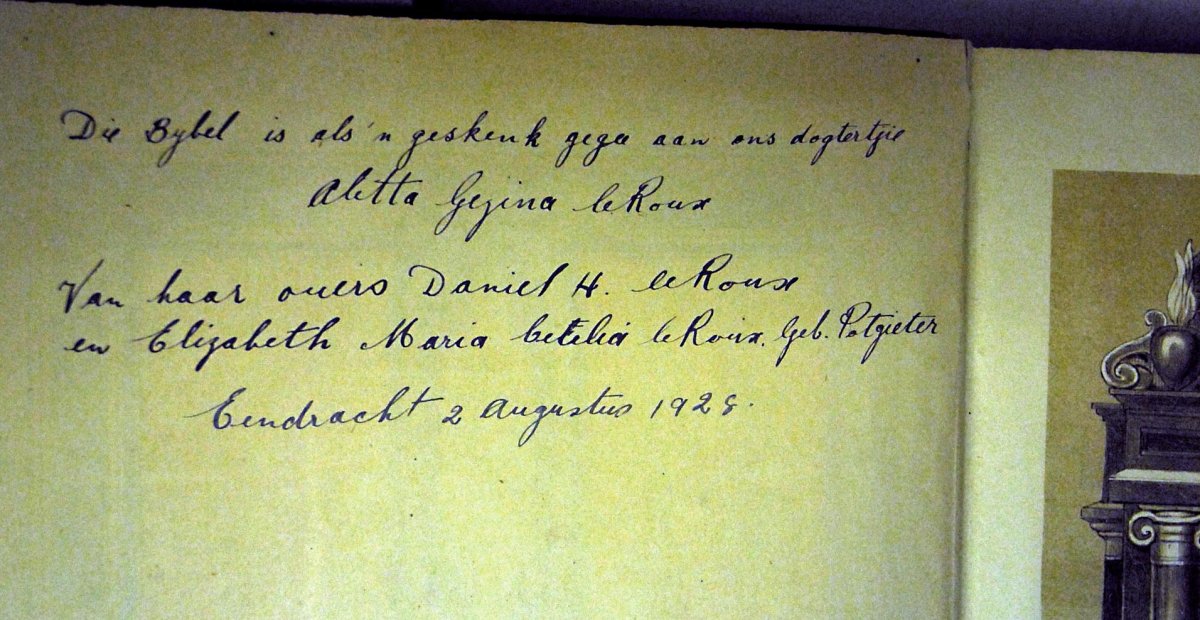 Die Bybel is als 'n geskenk gegee aan ons dogtertjie
Aletta Gezina le Roux
Van haar ouers Daniel H. le Roux
en Elizabeth Maria Cecelia le Roux. Geb. Potgieter
Eendracht 2 Augustus 1928.